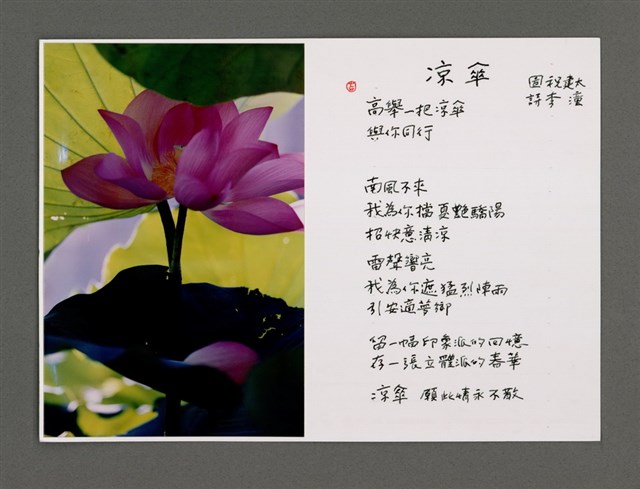 凉傘
圖 祝建太
詩 李潼
高舉一把涼傘
與你同行
南風不來
我為你擋夏艷驕陽
招快意清凉
雷聲響亮
我為你遮猛烈陣雨
引安適夢鄉
留一幅印象派的回憶
存一張立體派的春華
凉傘 願此情永不散